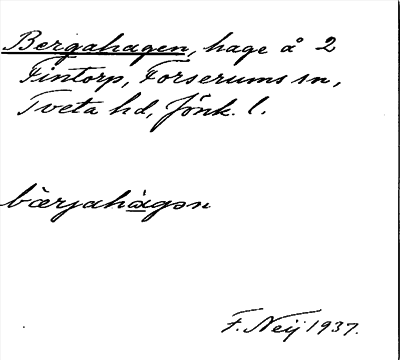 Bergahagen, hage å 2
Fintorp, Forserums sn,
Tveta hd, Jönk. l.
bärjahàgən
F. Neij 1937.